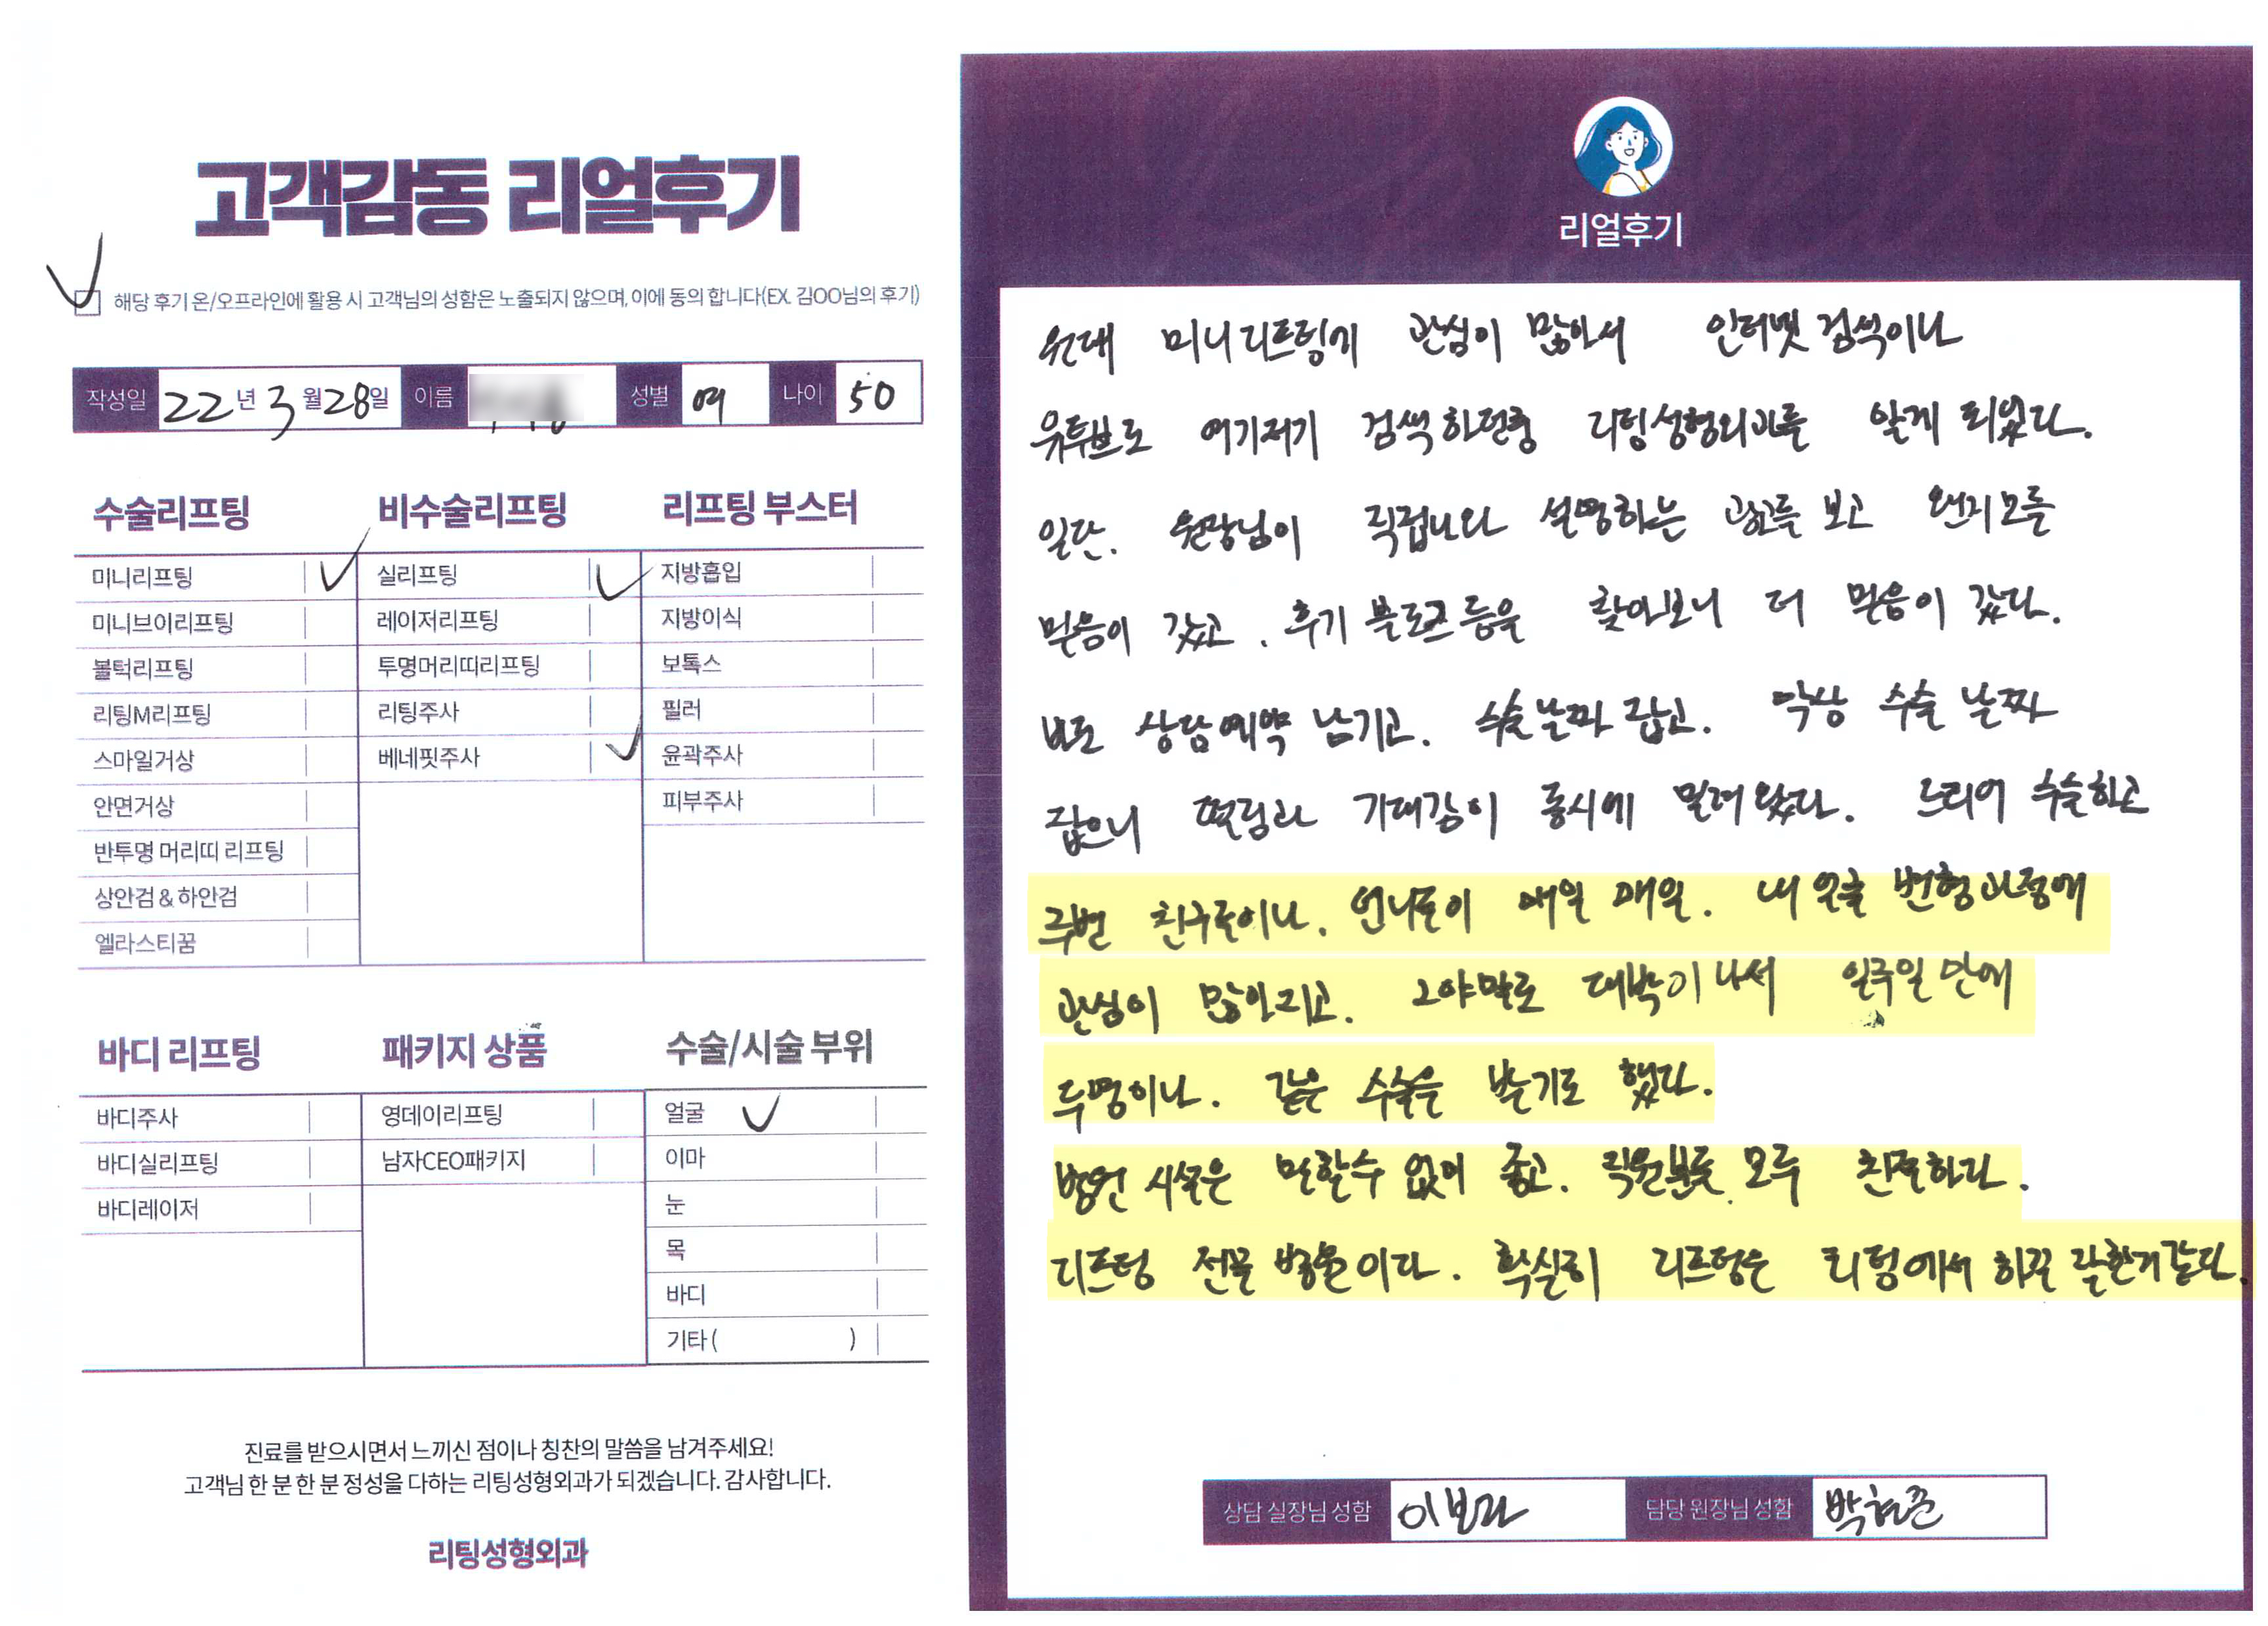 고객감동 리얼후기
해당 후기 온/오프라인에 활용 시 고객님의 성함은 노출되지 않으며, 이에 동의 합니다(EX. 김OO님의 후기)
작성일 22년 3월 28일 이름 성별 여 나이 50
수술리프팅
미니리프팅
미니브이리프팅
볼턱리프팅
리팅M리프팅
스마일거상
안면거상
반투명 머리띠 리프팅
상안검 & 하안검
엘라스티꿈
비수술리프팅
실리프팅
레이저리프팅
투명머리띠리프팅
리팅주사
베네핏주사
리프팅 부스터
지방흡입
지방이식
보톡스
필러
윤곽주사
피부주사
바디 리프팅
바디주사
바디실리프팅
바디레이저
패키지 상품
영데이리프팅
남자CEO패키지
수술/시술 부위
얼굴
이마
눈
목
바디
기타 ( )
진료를 받으시면서 느끼신 점이나 칭찬의 말씀을 남겨주세요!
고객님 한 분 한 분 정성을 다하는 리팅성형외과가 되겠습니다. 감사합니다.
리팅성형외과
리얼후기
원래 미니리프팅에 관심이 많아서 인터넷 검색이나
유투브로 여기저기 검색하던중 리팅성형외과를 알게 되었다.
일단. 원장님이 직접나와 설명하는 광고를 보고 왠지모를
믿음이 갔고. 후기 블로그 등을 찾아보니 더 믿음이 갔다.
바로 상담예약 남기고. 수술날짜 잡고. 막상 수술 날짜
잡으니 떨림과 기대감이 동시에 밀려 왔다. 드디어 수술하고
주변 친구들이나. 언니들이 매일 매일. 내 얼굴 변형과정에
관심이 많아지고. 그야말로 대박이 나서 일주일 만에
두명이나. 같은 수술을 받기도 했다.
병원 시설은 말할수 없이 좋고. 직원분들 모두 친절하다.
리프팅 전문 병원이다. 확실히 리프팅은 리팅에서 하길 잘한거같다.
상담 실장님 성함 이보라 담당 원장님 성함 박현준